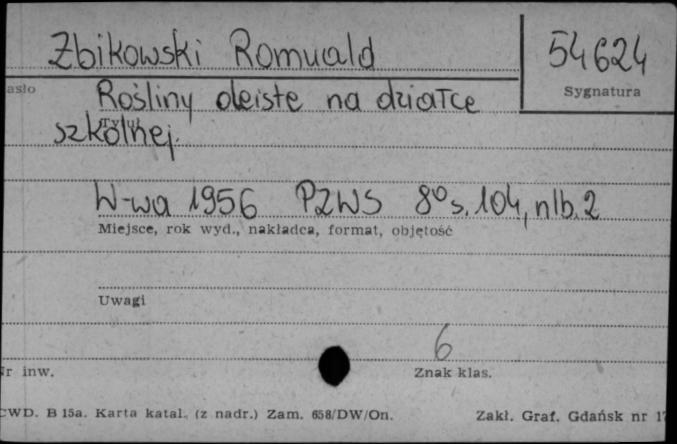 Zbikowski Romuald
54624
Sygnatura
asło
Rośliny oleiste na działce
Tytuł
szkolnej.
W-wa 1956 PZWS 8° s. 104, nlb. 2
Miejsce, rok wyd., nakładca, format, objętość
Uwagi
6
Nr inw.
Znak klas.
CWD. B 15a. Karta katal. (z nadr.) Zam. 658/DW/On.
Zakł. Graf. Gdańsk nr 1